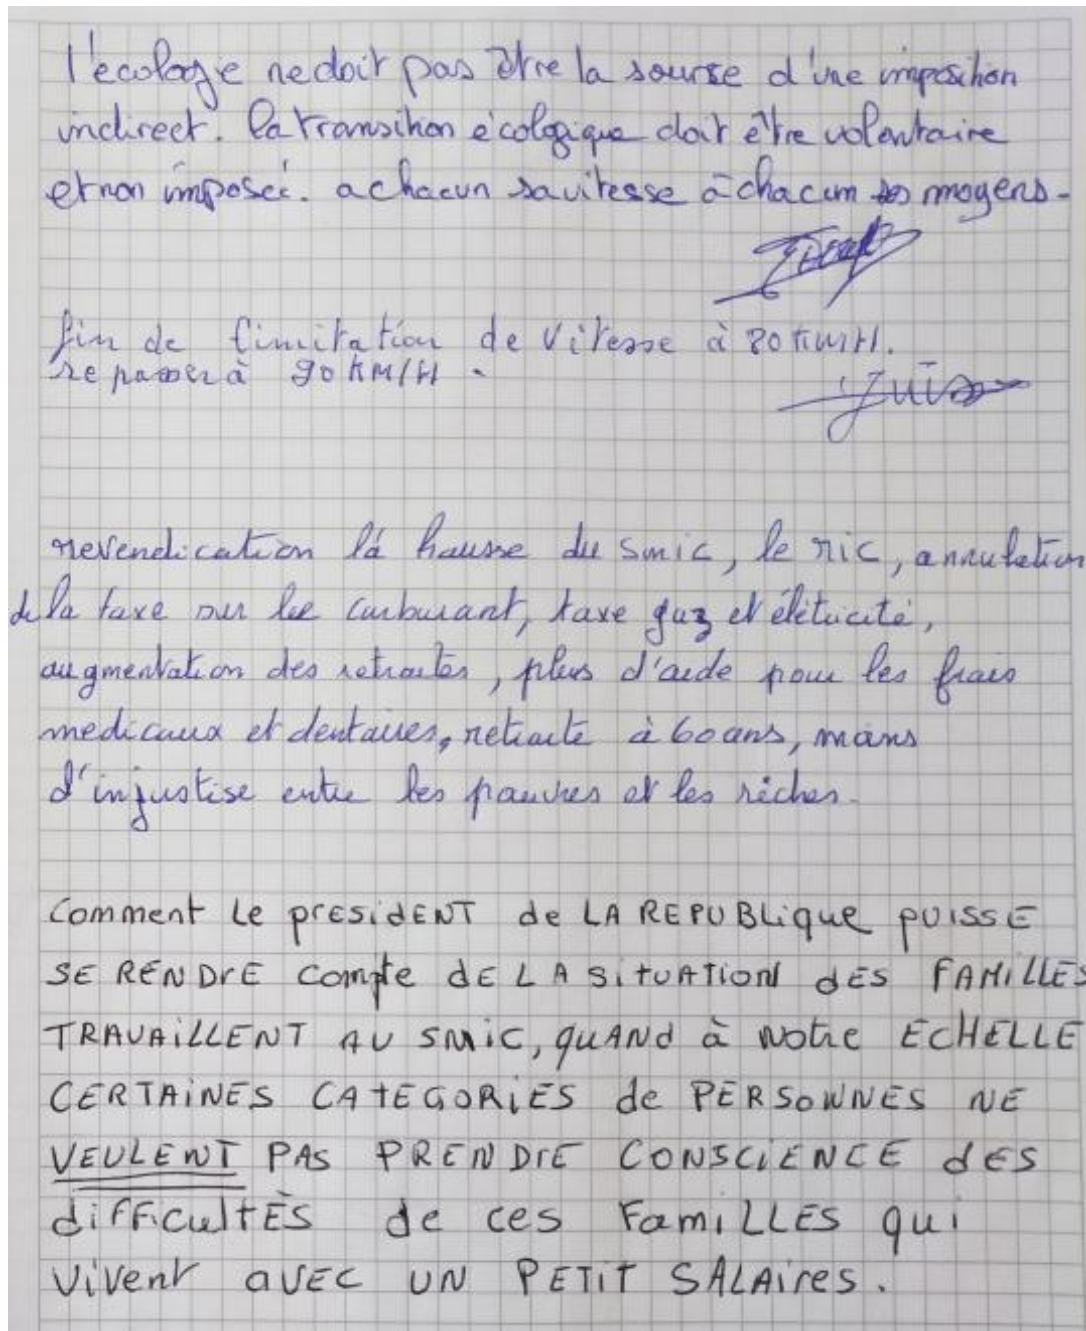 l'ecologie ne doit pas être la sourse d'une imposition
indirect. la transition écologique doit être volontaire
et non imposeé. a chacun sa vitesse à chacun ses moyens.
fin de limitation de vitesse à 80 KM/H.
repasser à 90 KM/H.
revendication là hausse du smic, le ric, annulation
de la taxe sur le carburant, taxe gaz et élétricité,
augmentation des retraites, plus d'aide pour les frais
medicaux et dentaires, retraite à 60 ans, moins
d'injustise entre les pauvres et les riches.
Comment Le presidENT de LA REPUBLique PUISSE
SE RENDrE Compte dE LA SiTUATION dES FAMiLLES
TRAVAiLLENT AU SMiC, quANd à Notre ECHELLE
CERTAiNES CATEGORiES de PERSONNES NE
VEULENT PAS PRENDrE CONSCiENCE dES
diFFicultÈS de ces FamiLLES qui
Vivent avEC UN PETiT SALAires.